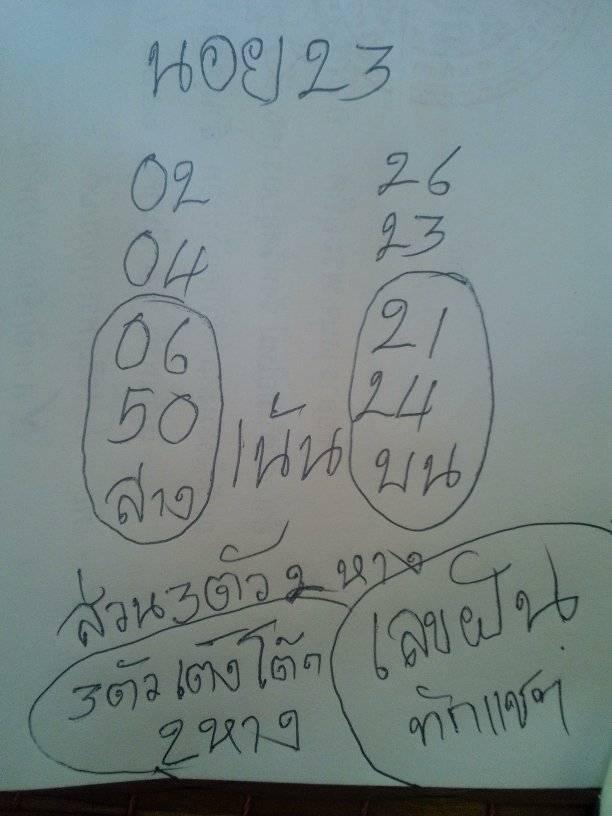 นอย 23
02 26
04 23
06 21
50 24
ล่าง เน้น บน
ส่วน 3 ตัว 2 หาง
3 ตัว เต็ง โต๊ด
2 หาง
เลขฝัน
ทักแชท